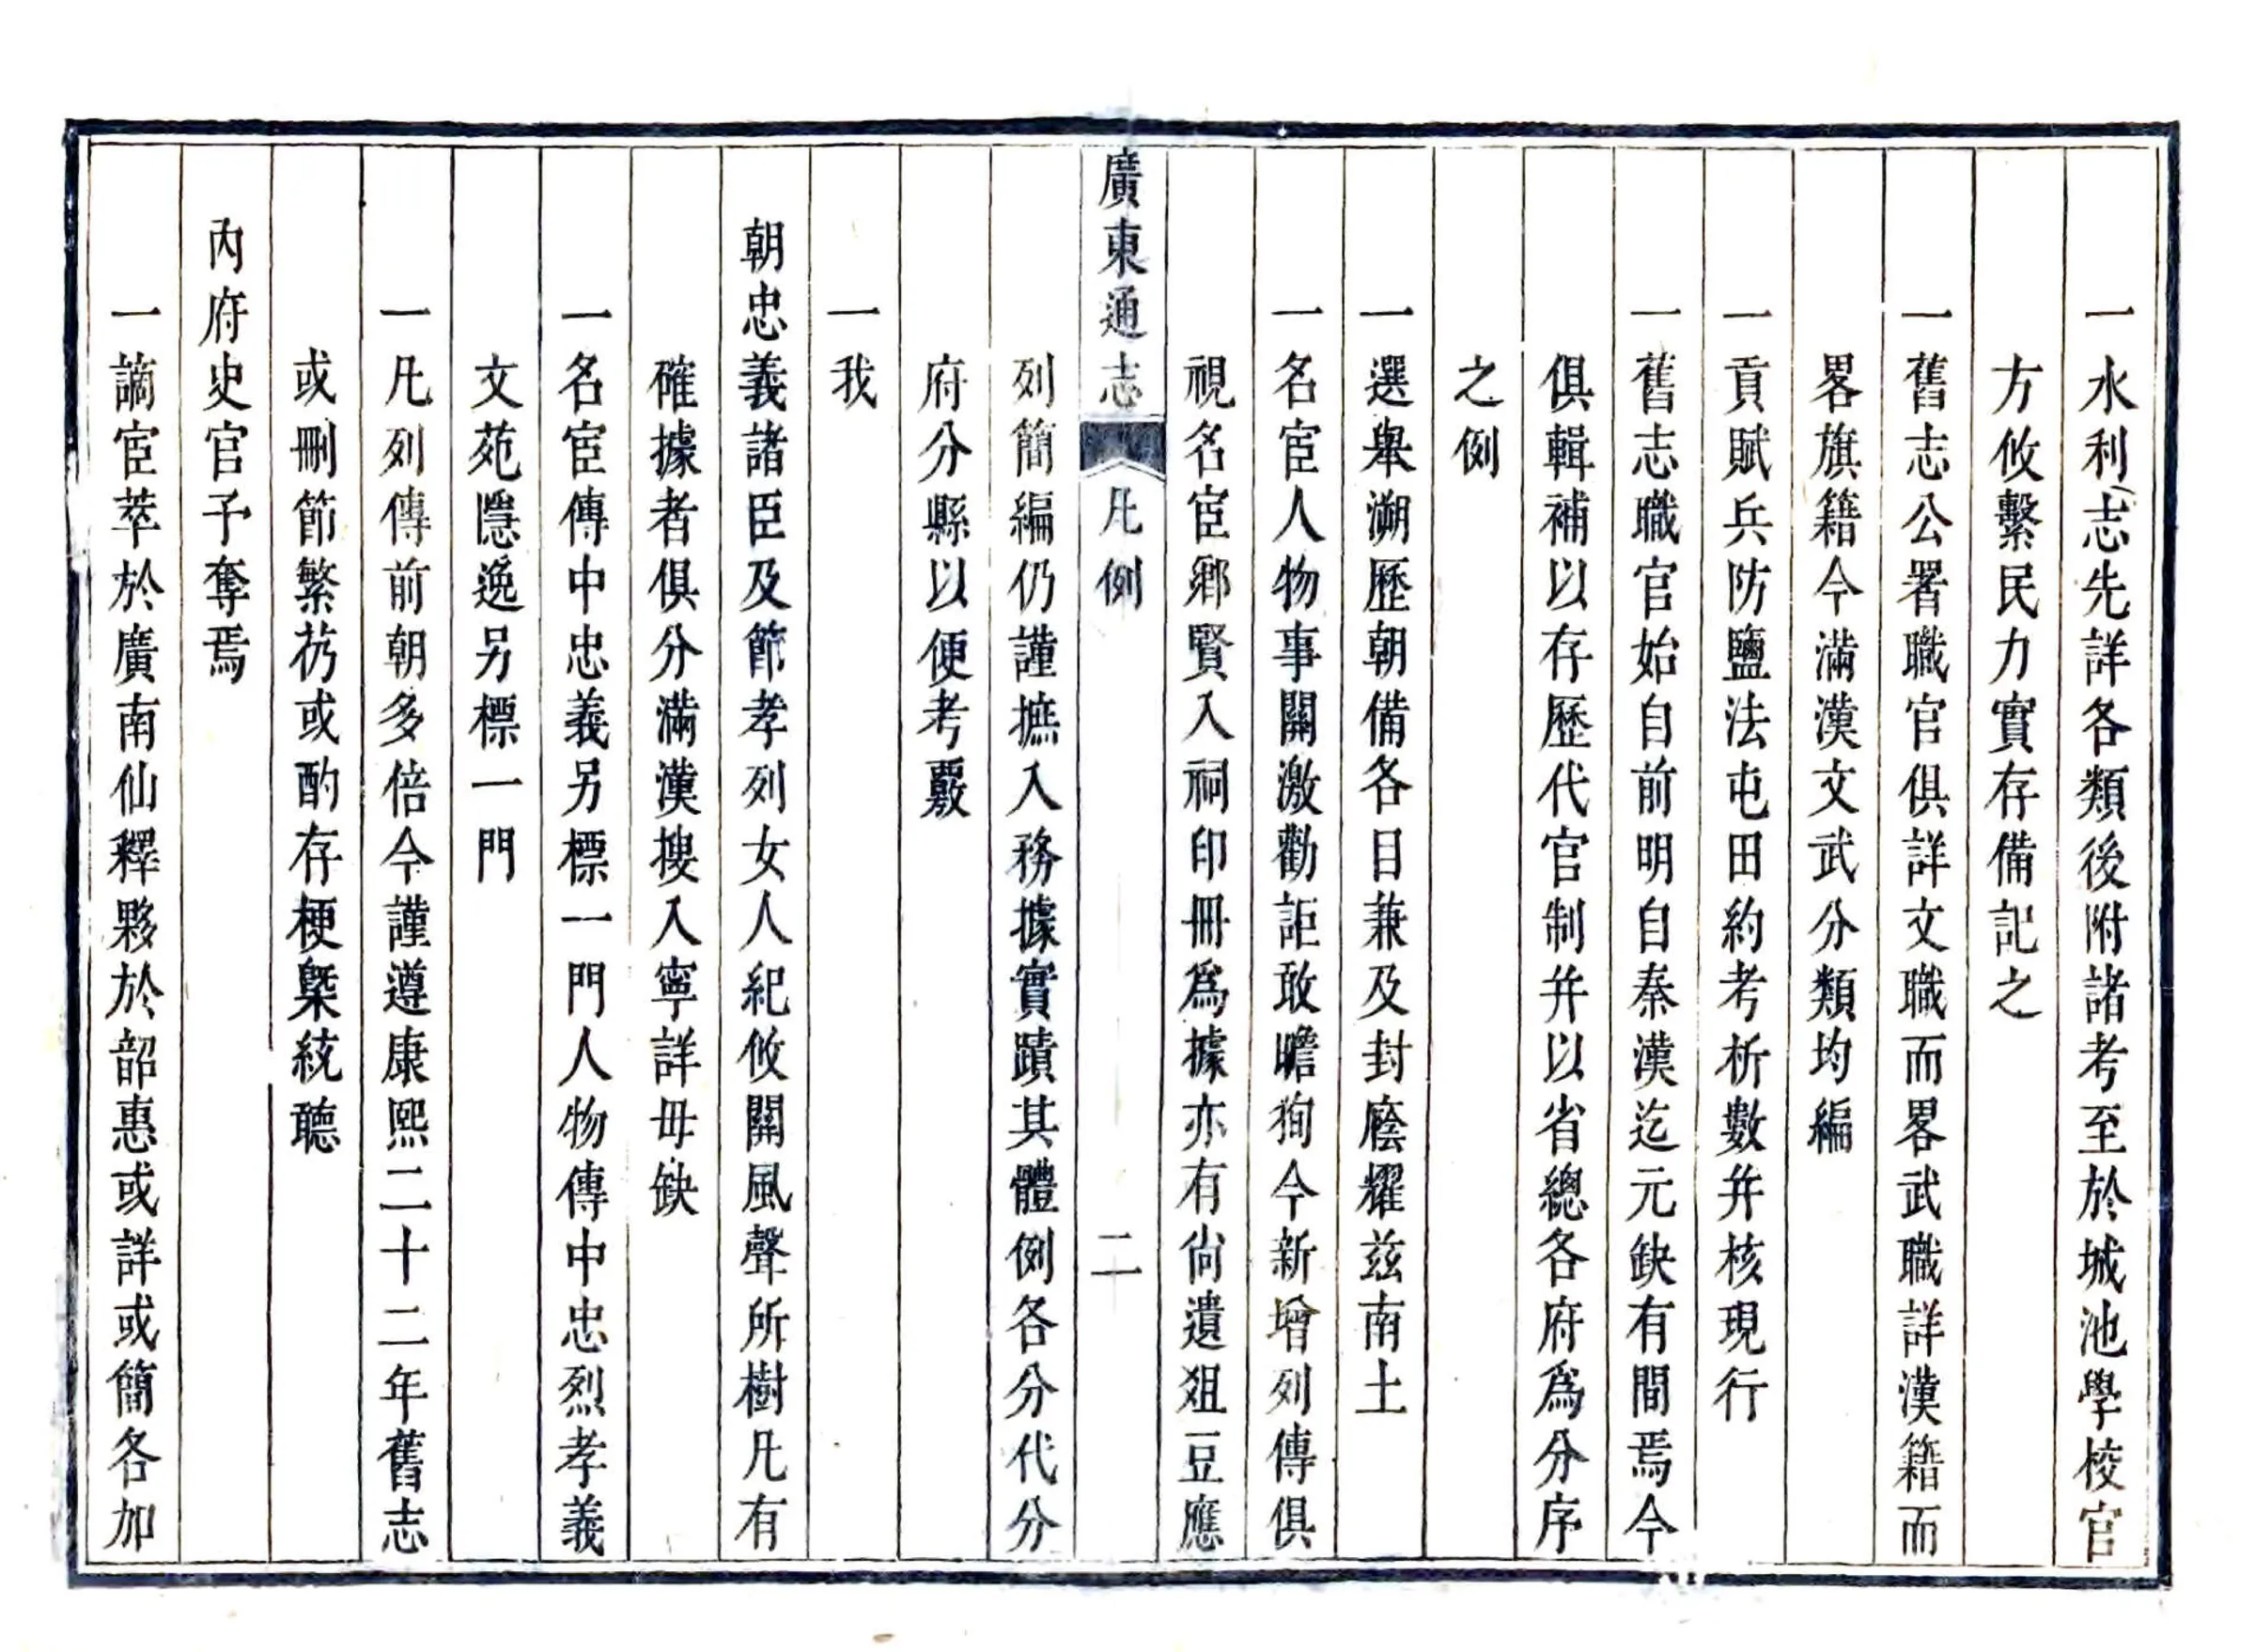 一水利志先詳各類後附諸考至於城池學校官
方攸繫民力實存備記之
一舊志公署職官俱詳文職而畧武職詳漢籍而
畧旗籍今滿漢文武分類均編
一貢賦兵防鹽法屯田約考析數幷核現行
一舊志職官始自前明自秦漢迄元缺有間焉今
俱輯補以存歷代官制幷以省總各府爲分序
之例
一選舉溯歷朝備各目兼及封廕耀兹南土
一名宦人物事關激勸詎敢瞻狥今新增列傳俱
視名宦鄉賢入祠印冊爲據亦有尙遺俎豆應
廣東通志 凡例 二
列簡編仍謹摭入務據實蹟其體例各分代分
府分縣以便考覈
一我
朝忠義諸臣及節孝列女人紀攸關風聲所樹凡有
確據者俱分滿漢搜入寧詳毋缺
一名宦傳中忠義另標一門人物傳中忠烈孝義
文苑隱逸另標一門
一凡列傳前朝多倍今謹遵康熙二十二年舊志
或刪節繁扐或酌存梗槩統聽
內府史官予奪焉
一謫宦萃於廣南仙釋夥於韶惠或詳或簡各加